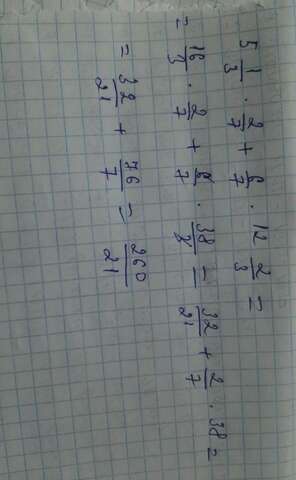 5 1/3 · 2/7 + 6/7 · 12 2/3 =
= 16/3 · 2/7 + 6/7 · 38/3 = 32/21 + 2/7 · 38 =
= 32/21 + 76/7 = 260/21